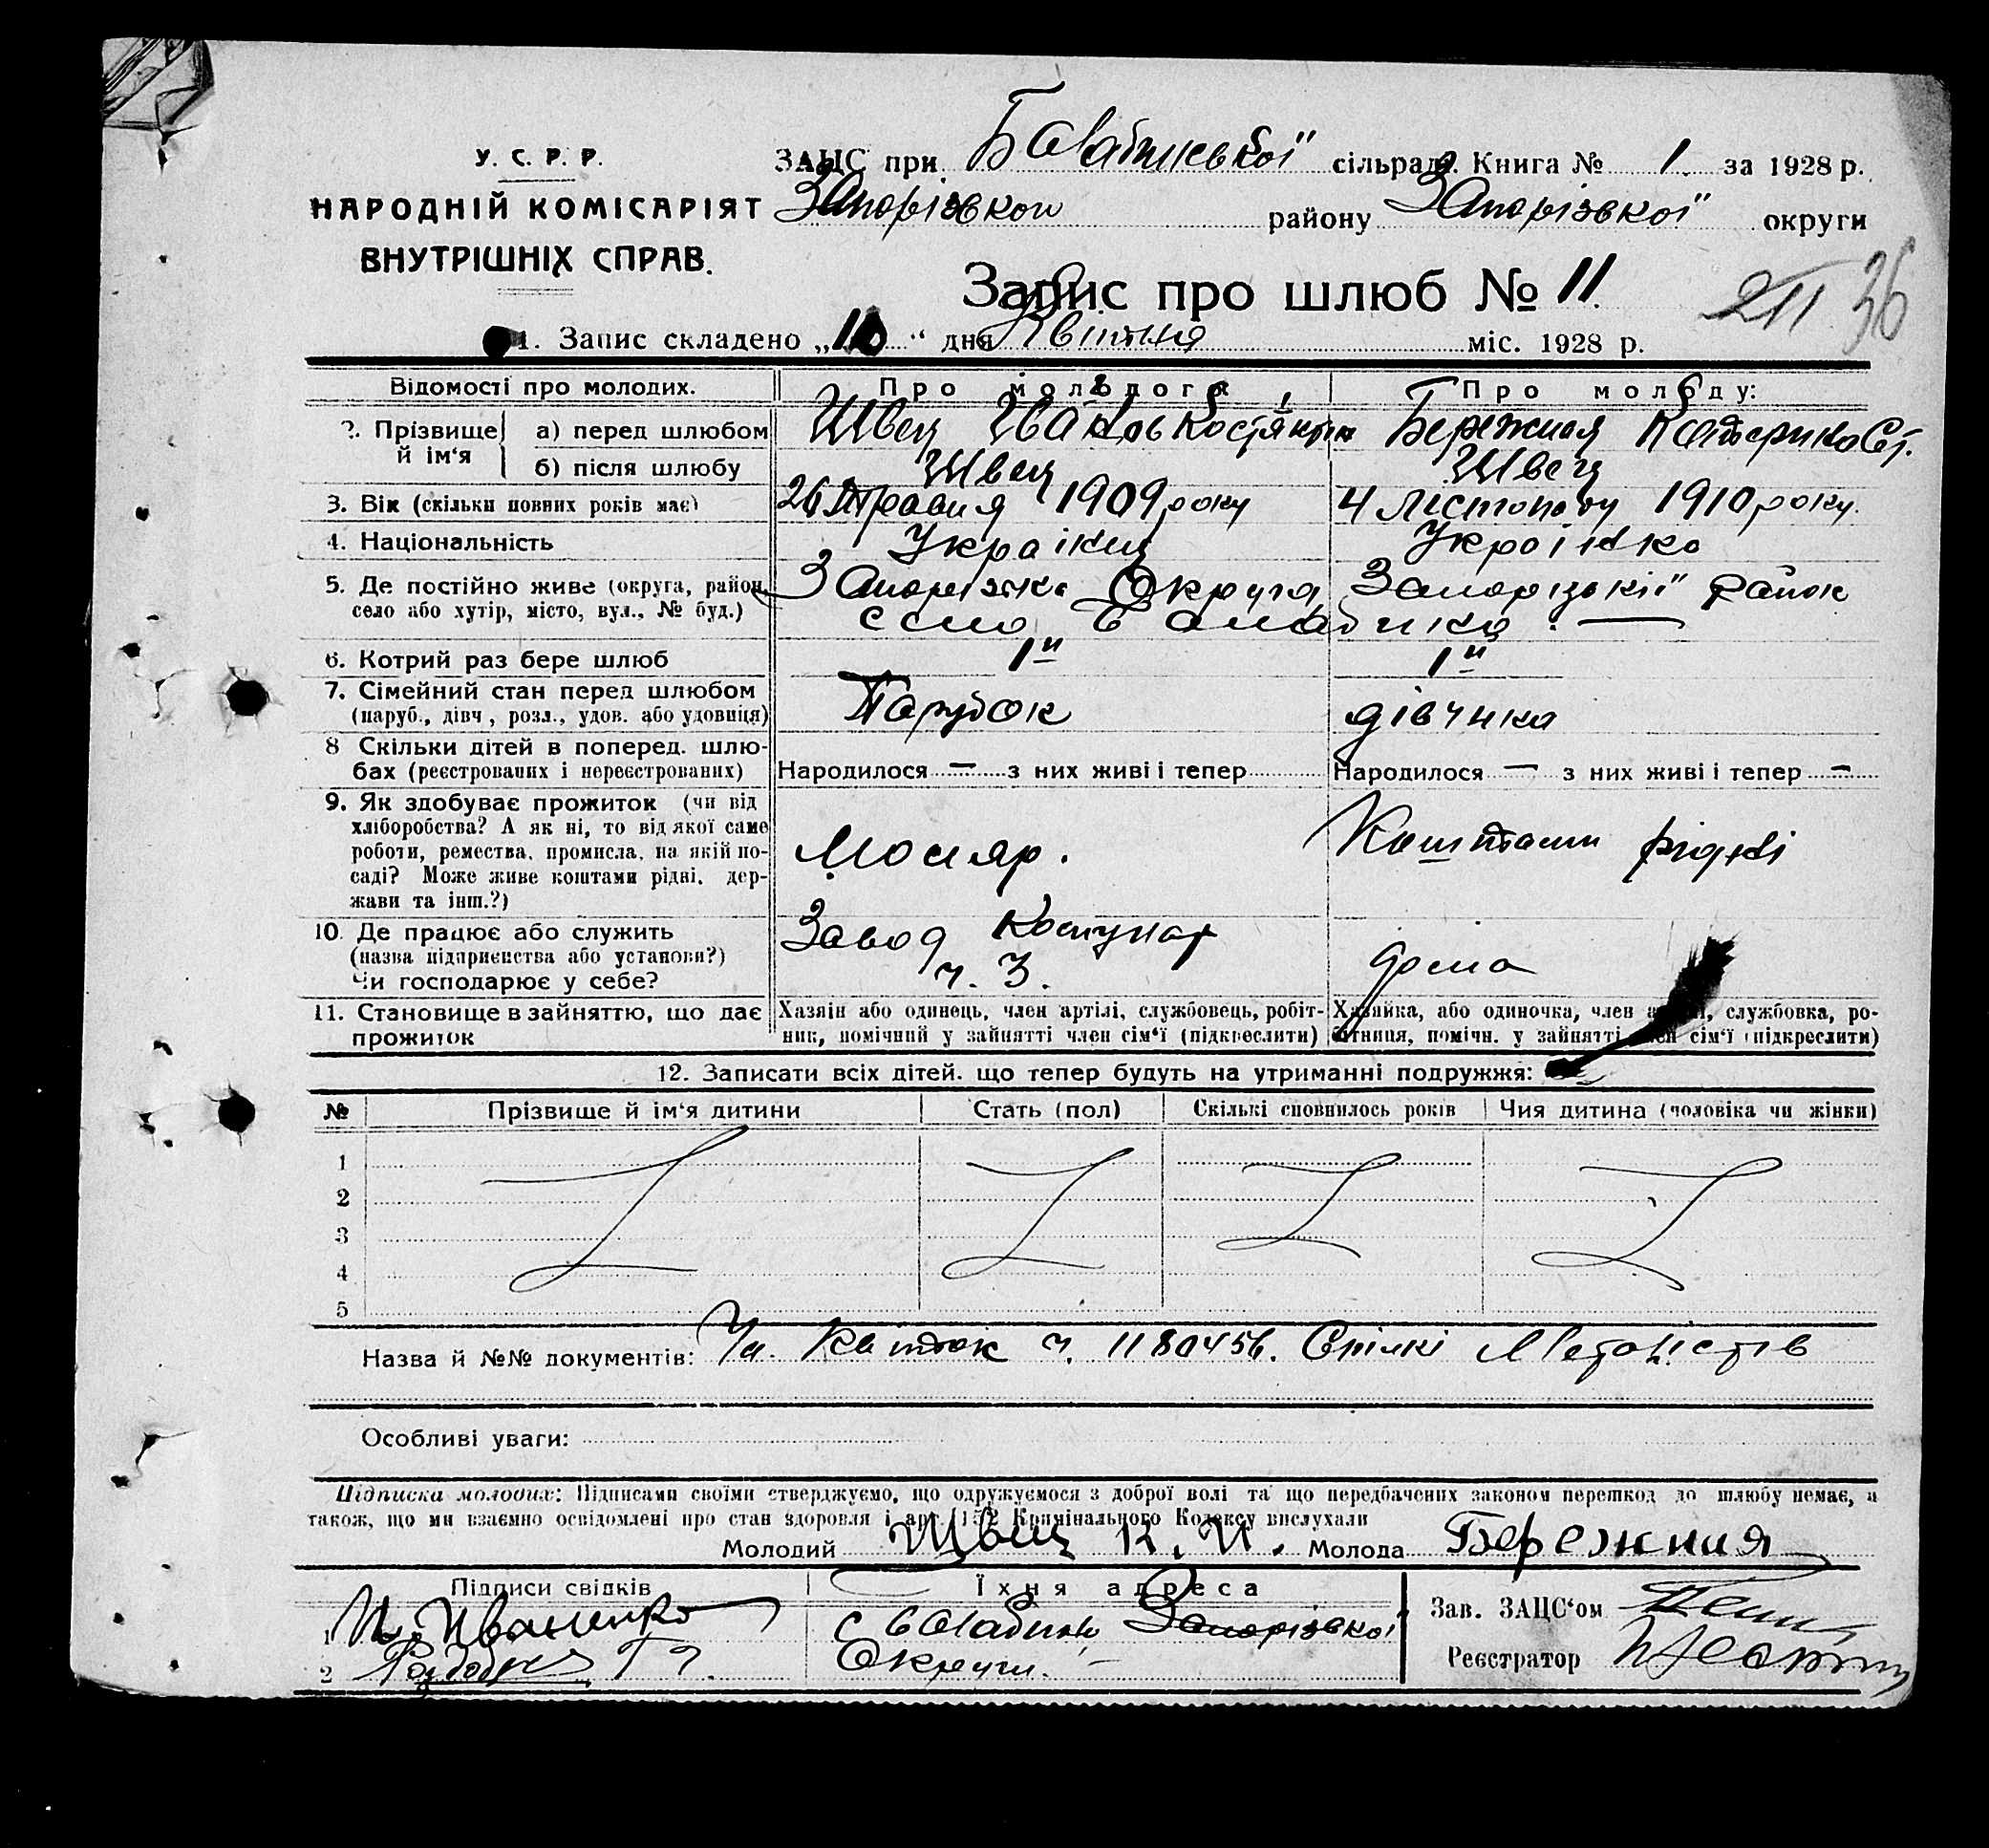 У. С. Р. Р.
НАРОДНІЙ КОМІСАРІЯТ
ВНУТРІШНІХ СПРАВ.
ЗАЦС при Балабинської сільраді Книга № 1. за 1928 р.
Запорізького району Запорізької округи
Запис про шлюб № 11.
36
1. Запис складено „10“ дня Квітня міс. 1928 р.
Відомості про молодих. Про молодого Про молоду:
2. Прізвище й ім‘я а) перед шлюбом Швец Іван Костянтин Бережная Катерина Ст.
б) після шлюбу Швец Швец
3. Вік (скільки повних років має) 26 Травня 1909 року 4 Лістопаду 1910 року.
4. Національність Українец Українка
5. Де постійно живе (округа, район, село або хутір, місто, вул., № буд.) Запорізька Округа Запорізький район
село Балабинка. —
6. Котрий раз бере шлюб 1й 1й
7. Сімейний стан перед шлюбом (паруб., дівч, розл., удов. або удовиця) Парубок дівчина
8 Скільки дітей в поперед. шлюбах (реєстрованих і нереєстрованих) Народилося — з них живі і тепер Народилося — з них живі і тепер —
9. Як здобуває прожиток (чи від хліборобства? А як ні, то від якої саме роботи, ремества, промисла, на якій посаді? Може живе коштами рідні, держави та інш.?) Маляр. Коштами рідні
10. Де працює або служить (назва підприємства або установи?) Чи господарює у себе? Завод Комунар ч. 3. дома
11. Становище в зайняттю, що дає прожиток Хазяїн або одинець, член артілі, службовець, робітник, помічний у зайнятті член сім‘ї (підкреслити) Хазяйка, або одиночка, член артілі, службовка, робітниця, помічн. у зайнятті член сім‘ї (підкреслити)
12. Записати всіх дітей, що тепер будуть на утриманні подружжя: —
№ Прізвище й ім‘я дитини Стать (пол) Скількі сповнилось років Чия дитина (чоловіка чи жінки)
1
2
3
4
5
Назва й №№ документів: Чл. Квиток ч. 1180456. Спілкі Металістів
Особливі уваги:
Підписка молодих: Підписами своїми стверджуємо, що одружуємося з доброї волі та що передбачених законом перешкод до шлюбу немає, а
також, що ми взаємно освідомлені про стан здоровля і арт. 152 Кримінального Кодексу вислухали
Молодий Швец К. И. Молода Бережния
Підписи свідків Їхня адреса
1 И. Иваненко с Балабинка Запорізької
2 Округи. —
Зав. ЗАЦС‘ом
Реєстратор